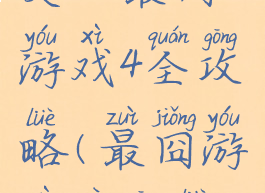 yóu xì quán gōng
游戏4全攻
lüè zuì jiǒng yóu
略(最囧游